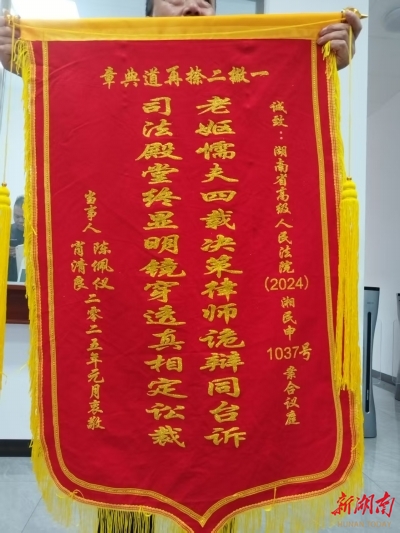 一撇二捺再道典章
诚致：湖南省高级人民法院(2024)湘民申1037号案合议庭
老妪懦夫四载决策律师诡辩同台诉
司法殿堂终显明镜穿透真相定讼裁
当事人 陈佩仪
肖清良 二零二五年元月衷敬
新湖南